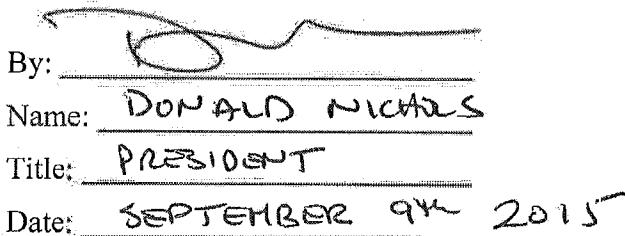 By:
Name: DONALD NICHOLS
Title: PRESIDENT
Date: SEPTEMBER 9th 2015